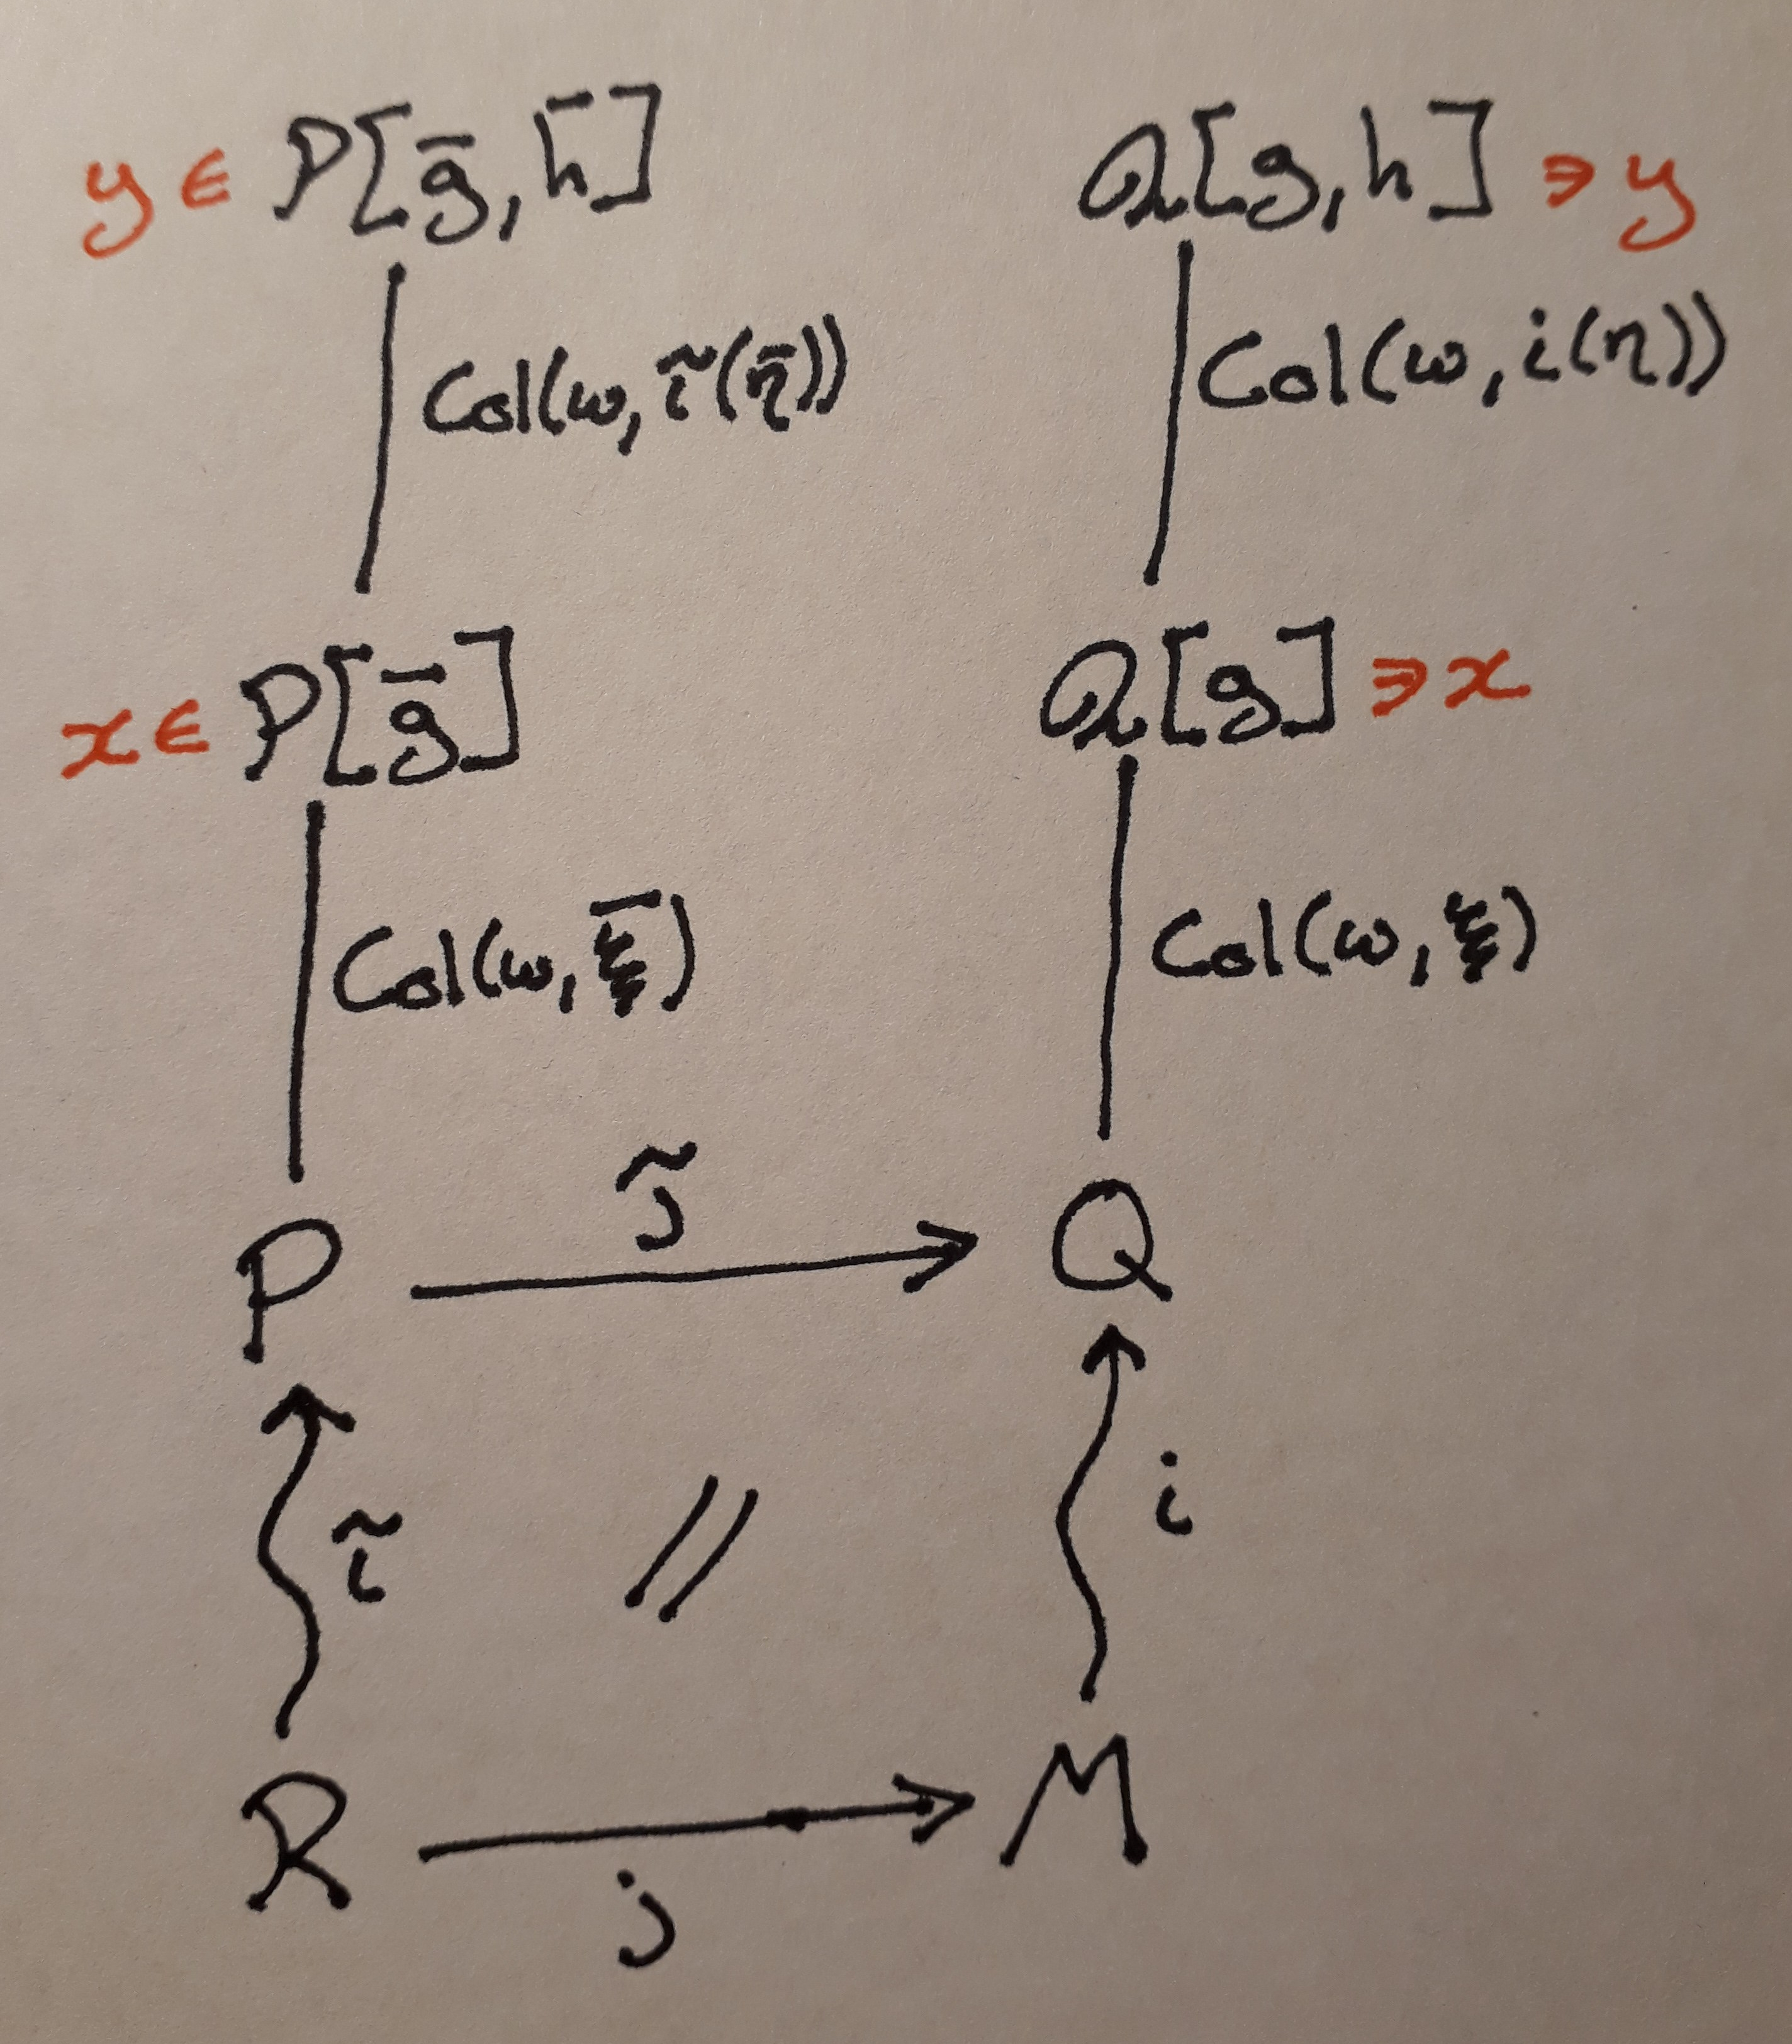 y ∈ P[ḡ, h̄] Q[g, h] ∋ y
Col(ω, ĩ(η̄)) Col(ω, i(η))
x ∈ P[ḡ] Q[g] ∋ x
Col(ω, ξ̄) Col(ω, ξ)
j̃
P Q
ĩ // i
R M
j